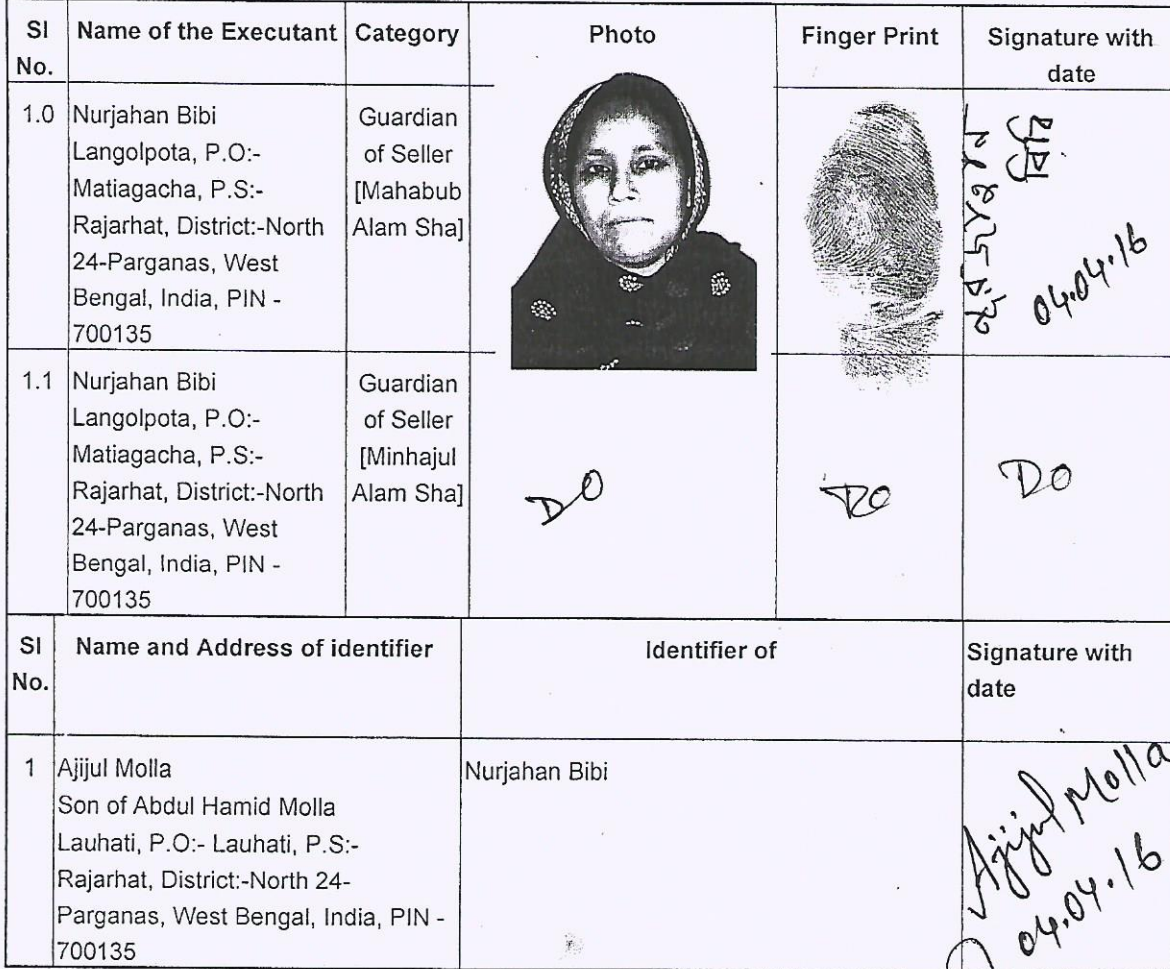 Sl No.
Name of the Executant
Category
Photo
Finger Print
Signature with date
1.0
Nurjahan Bibi
Langolpota, P.O:-
Matiagacha, P.S:-
Rajarhat, District:-North
24-Parganas, West
Bengal, India, PIN -
700135
Guardian
of Seller
[Mahabub
Alam Sha]
04.04.16
1.1
Nurjahan Bibi
Langolpota, P.O:-
Matiagacha, P.S:-
Rajarhat, District:-North
24-Parganas, West
Bengal, India, PIN -
700135
Guardian
of Seller
[Minhajul
Alam Sha]
DO
DO
DO
Sl No.
Name and Address of identifier
Identifier of
Signature with
date
1
Ajijul Molla
Son of Abdul Hamid Molla
Lauhati, P.O:- Lauhati, P.S:-
Rajarhat, District:-North 24-
Parganas, West Bengal, India, PIN -
700135
Nurjahan Bibi
Ajijul Molla
04.04.16